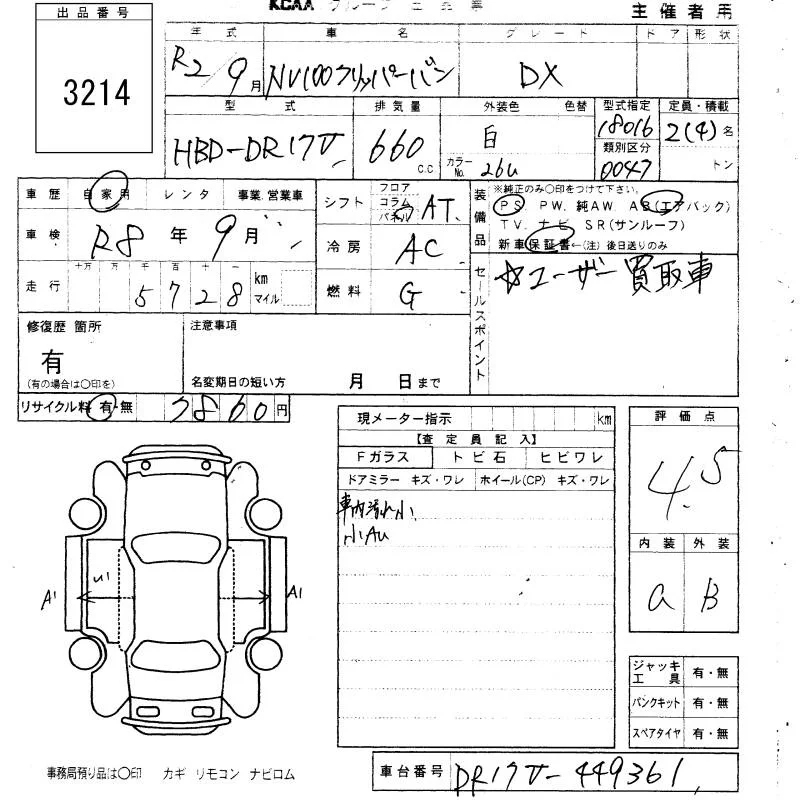 出品番号
3214
KCAA グループ
主催者用
年式 車名 グレード ドア 形状
R2/9月 NV100クリッパーバン DX
型式 排気量 外装色 色替 型式指定 定員・積載
HBD-DR17V 660 c.c 白 18016 2(4)名
カラーNo. 26U 類別区分 0047 トン
車歴 自家用 レンタ 事業.営業車
車検 R8年9月
走行 十万 万 千 百 十 一
5728 km マイル
シフト フロア コラム パネル AT
冷房 AC
燃料 G
装備品
※純正のみ〇印をつけて下さい。
PS PW. 純AW AB(エアバック)
TV. ナビ SR(サンルーフ)
新車保証書←(注)後日送りのみ
セールスポイント
☆ユーザー買取車
修復歴 箇所
有
(有の場合は〇印を)
注意事項
名変期日の短い方 月 日まで
リサイクル料 有・無 7860円
現メーター指示 km
【査定員記入】
Fガラス トビ石 ヒビワレ
ドアミラー キズ・ワレ ホイール(CP) キズ・ワレ
車内汚れ小
小AU
評価点
4.5
内装 外装
a B
A1 U1 A1
ジャッキ工具 有・無
パンクキット 有・無
スペアタイヤ 有・無
事務局預り品は〇印 カギ リモコン ナビロム
車台番号 DR17V-449361